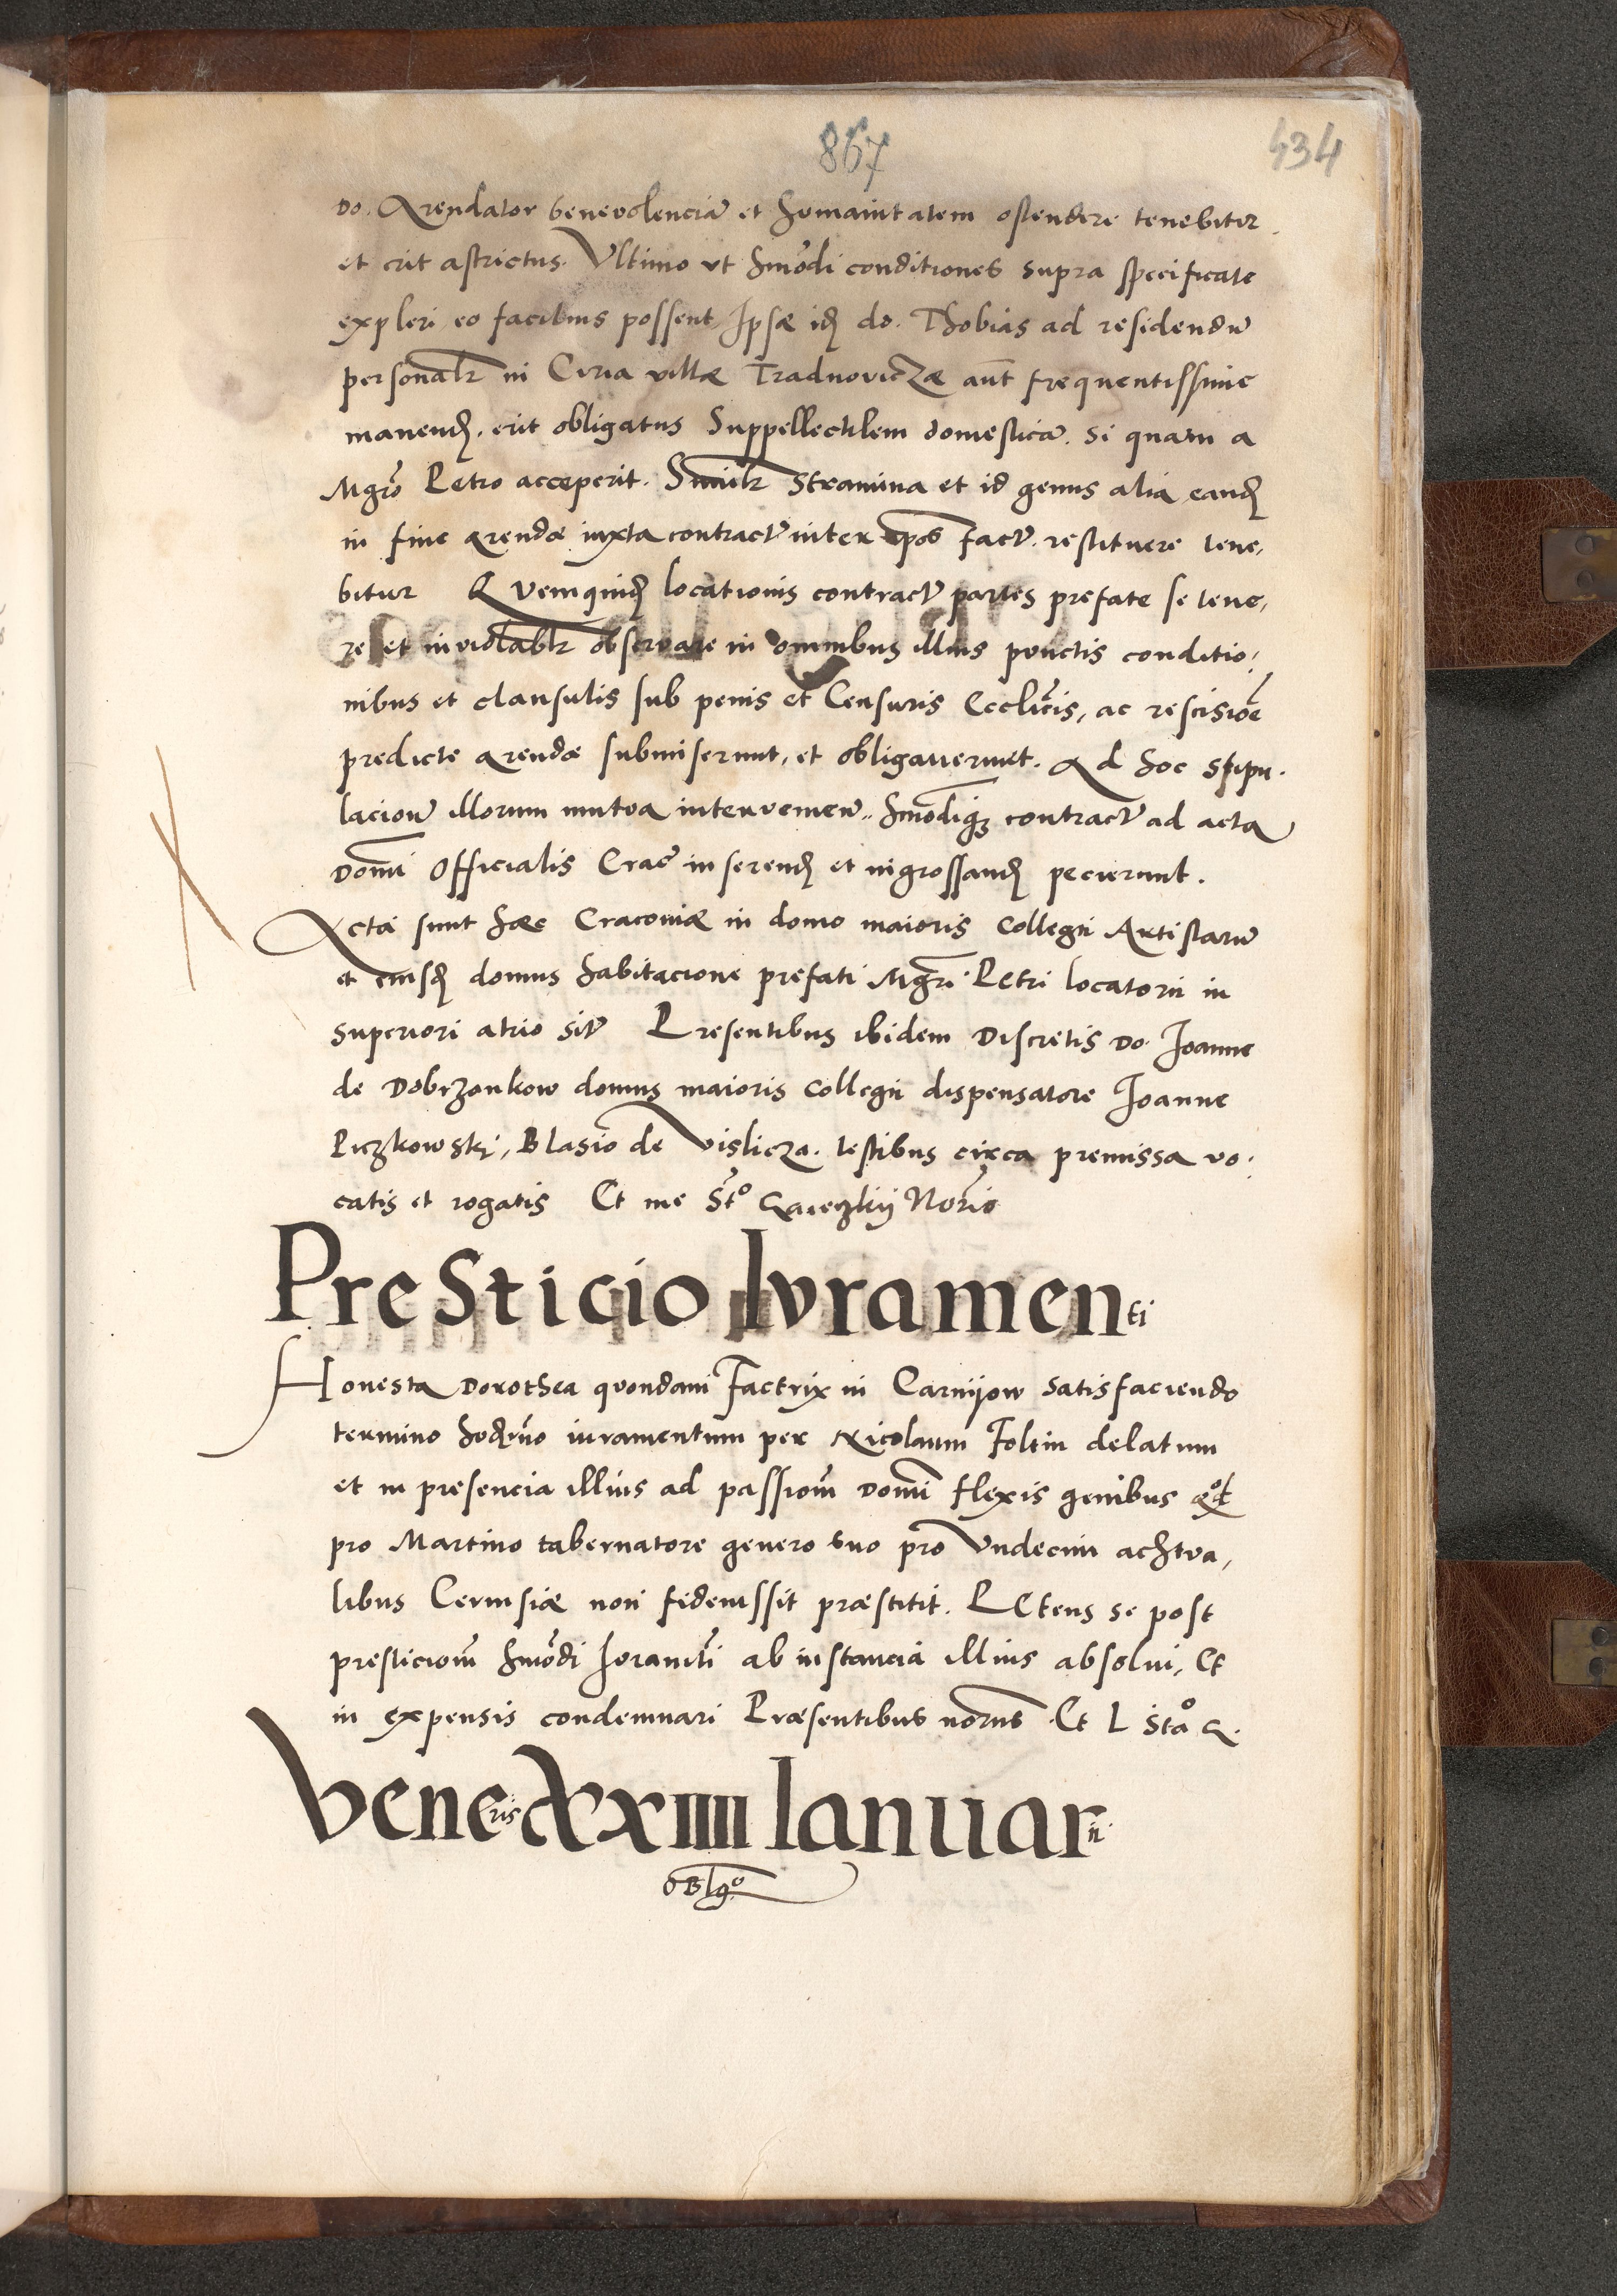 867
434
do. Arendator benevolenciā et humanitatem ostendere tenebitur
et erit astrictus. Vltimo vt hmōdi conditiones supra specificate
expleri eo facilius possent Ipsæ idē do. Thobias ad residendū
personalr in Curia villæ Tradnoviczæ aut frequentissime
manendꝭ. erit obligatus Suppellectilem domesticā. si quam a
Mgrō Petro acceperit. Similr Stramina et id genus alia eandꝭ
in fine arendæ iuxta contractū inter ipōs factū. restituere tene,
bitur Quemquidꝭ locationis contractū partes prefate se tene,
re et inviolablr observare in omnibus illius punctis conditio,
nibus et clausulis sub penis et Censuris Ecclīcis, ac rescisiōe
predicte arendæ submiserunt, et obligaverunt. Ad hoc stipu.
lacione illorum mutua interveniēn. hmōdiqꝫ contractū ad acta
Domī Officialis Crac̄ inserendꝭ et ingrossandꝭ pecierunt.
Acta sunt hæc Cracoviæ in domo maioris Collegii Artistarū
et eiusdꝭ domus habitacione prefati Mgrī Petri locatoris in
superiori atrio sitꝭ Presentibus ibidem Discretis Do. Joanne
de Dobrzankow domus maioris Collegii dispensatore Joanne
Piczkowskj, Blasio de Vislicza. testibus circa premissa vo.
catis et rogatis Et me Stō Gaieczkij Norīo
PreSticio Ivramenti
Honesta Dorothea quondam Factrix in Carnijow satisfaciendo
termino hodierno iuramentum per Nicolaum Foltin delatum
et in presencia illius ad passionē Domī flexis genibus qd
pro Martino tabernatore genero suo pro Vndecim achtua,
libus Cervisiæ non fideiussit præstitit. PEtens se post
presticionē hmōdi Iuramēti ab instancia illius absolvi, Et
in expensis condemnari Præsentibus norūs Et L Stāo G.
Veneris XXIIII Ianuarii
Oblgo